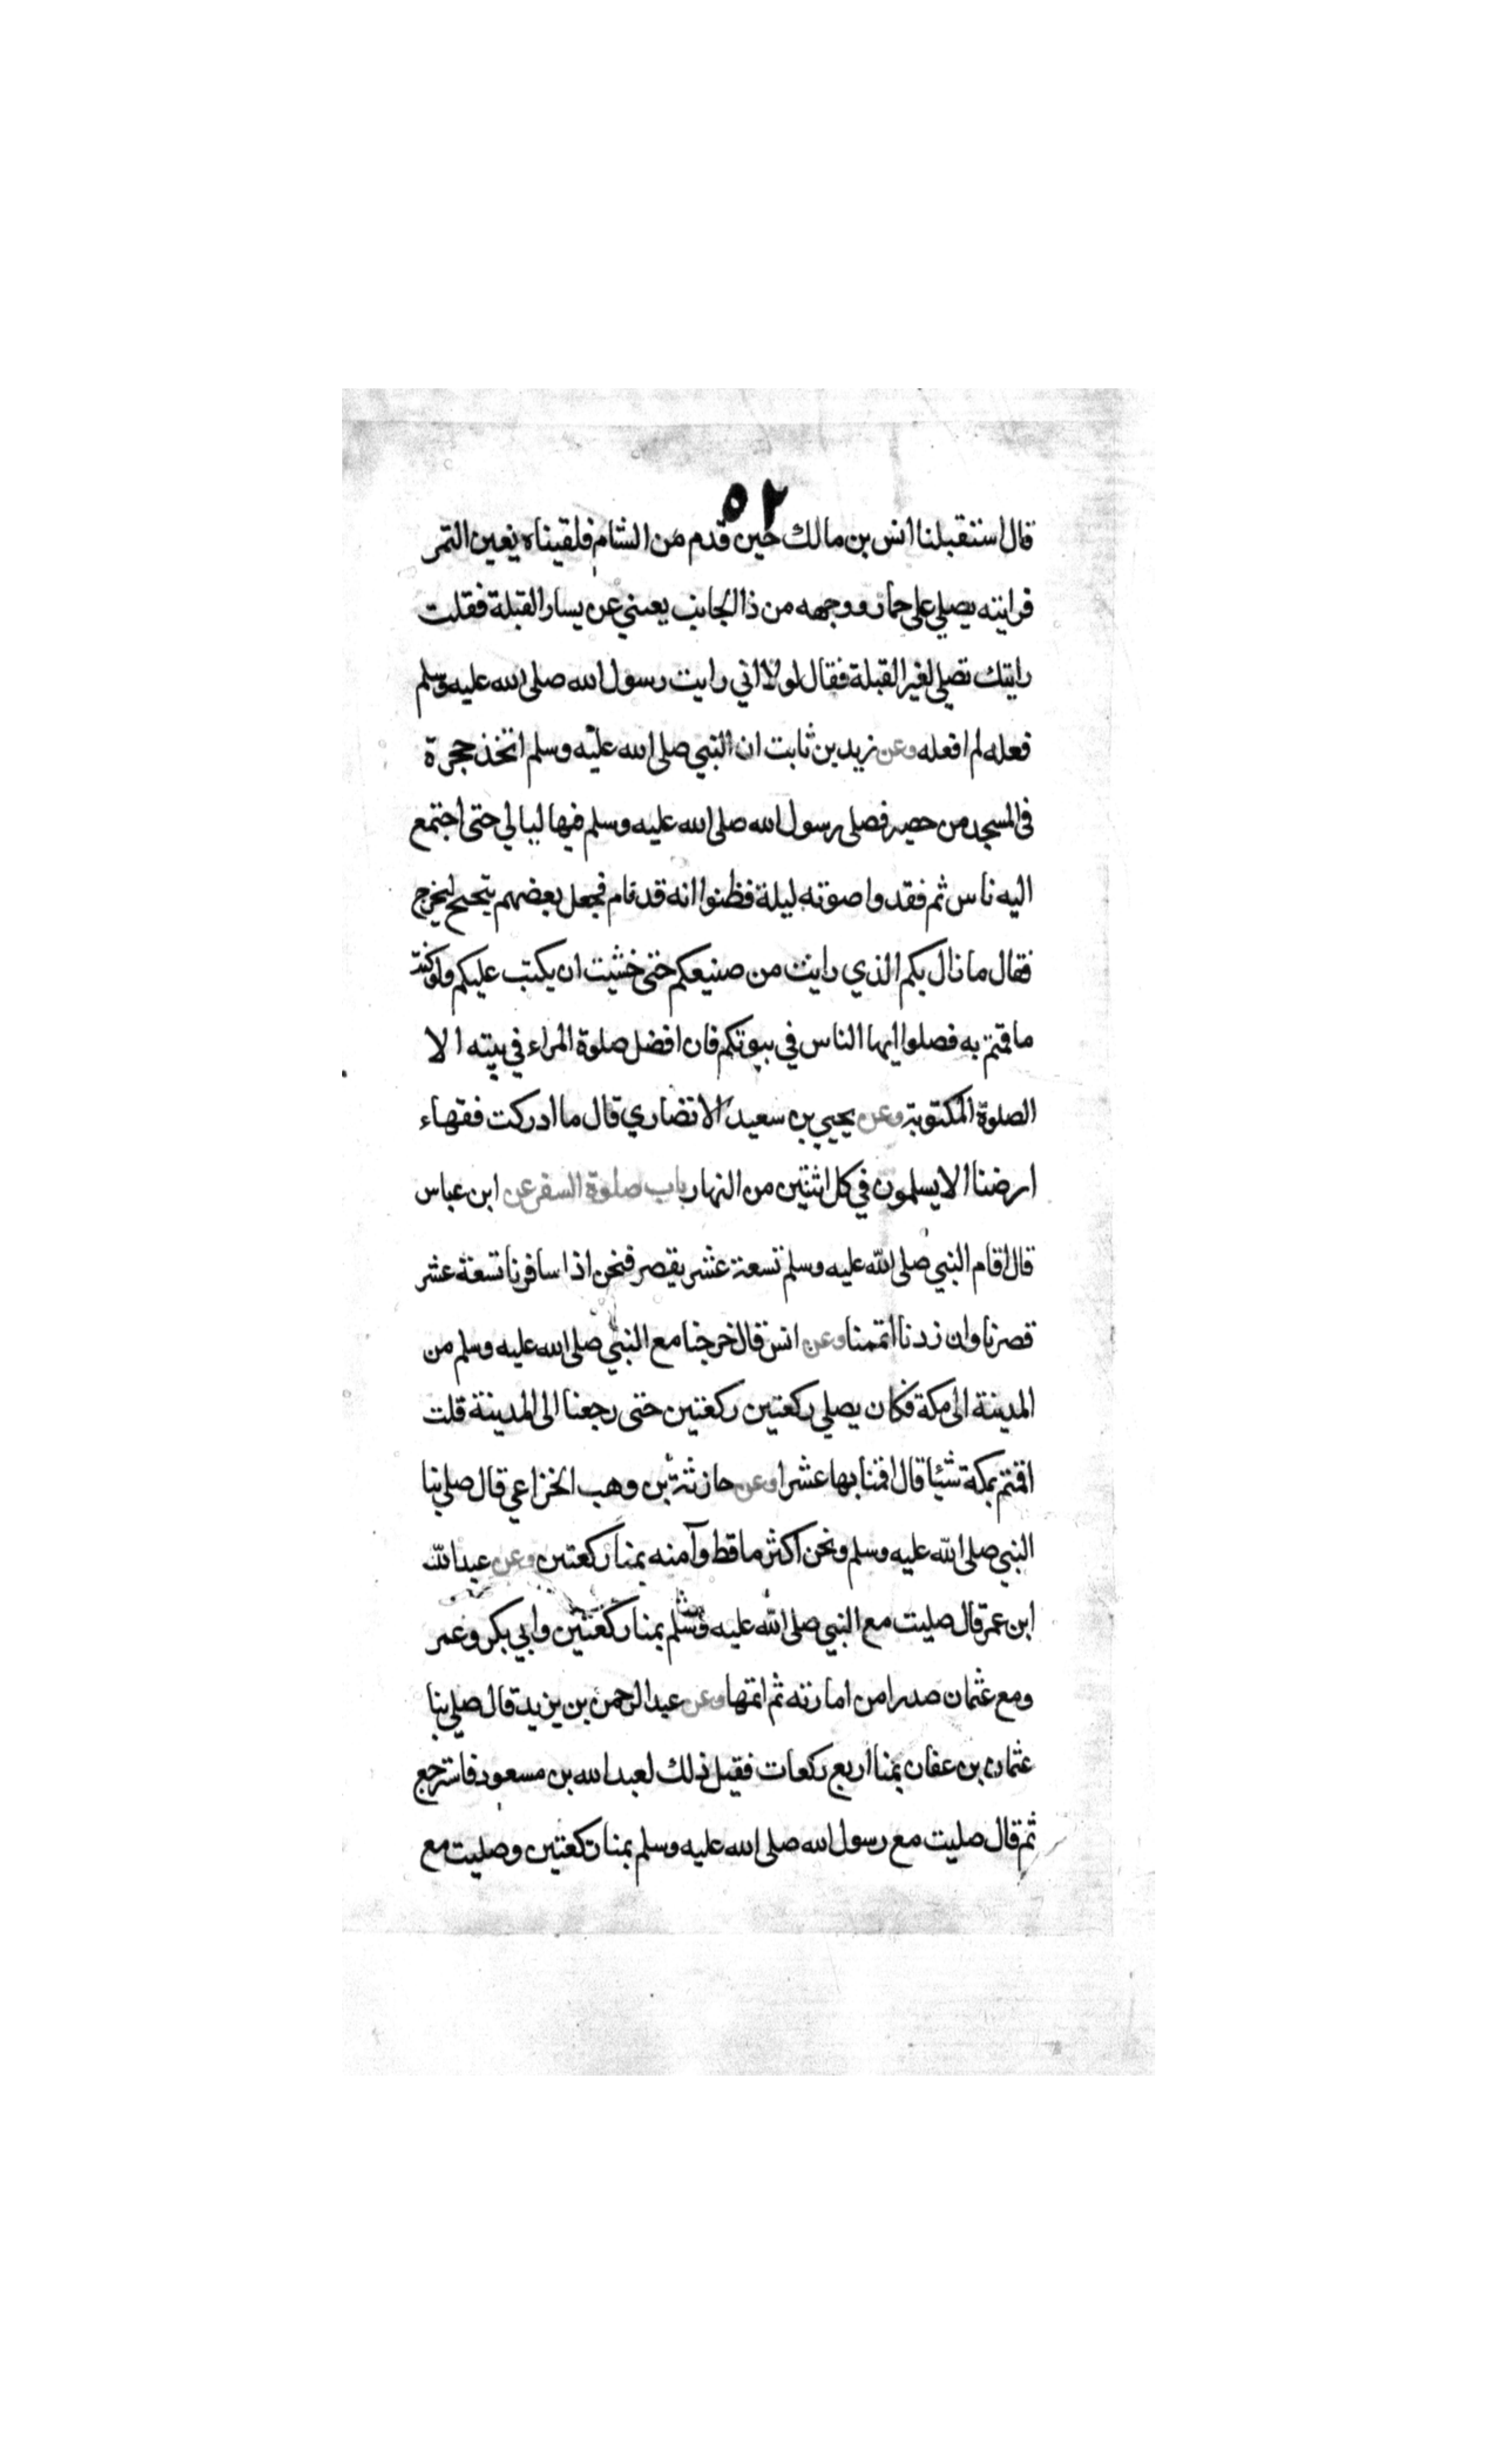 ٥٢
قال استقبلنا انس بن مالك حين قدم من الشام فلقيناه بعين التمر
فرايته يصلي على حمار ووجهه من ذا الجانب يعني عن يسار القبلة فقلت
رايتك تصلي لغير القبلة فقال لولا اني رايت رسول الله صلى الله عليه وسلم
فعله لم افعله وعن زيد بن ثابت ان النبي صلى الله عليه وسلم اتخذ حجرة
في المسجد من حصير فصلى رسول الله صلى الله عليه وسلم فيها ليالي حتى اجتمع
اليه ناس ثم فقدوا صوته ليلة فظنوا انه قد نام فجعل بعضهم يتنحنح ليخرج
فقال ما زال بكم الذي رايت من صنيعكم حتى خشيت ان يكتب عليكم ولو كتب
ما قمتم به فصلوا ايها الناس في بيوتكم فان افضل صلوة المراء في بيته الا
الصلوة المكتوبة وعن يحيى بن سعيد الانصاري قال ما ادركت فقهاء
ارضنا الا يسلمون في كل اثنتين من النهار باب صلوة السفر عن ابن عباس
قال اقام النبي صلى الله عليه وسلم تسعة عشر يقصر فنحن اذا سافرنا تسعة عشر
قصرنا وان زدنا اتممنا وعن انس قال خرجنا مع النبي صلى الله عليه وسلم من
المدينة الى مكة فكان يصلي ركعتين ركعتين حتى رجعنا الى المدينة قلت
اقمتم بمكة شيئا قال اقمنا بها عشرا وعن حارثة بن وهب الخزاعي قال صلي بنا
النبي صلى الله عليه وسلم ونحن اكثر ما قط وآمنه بمنا ركعتين وعن عبد الله
ابن عمر قال صليت مع النبي صلى الله عليه وسلم بمنا ركعتين وابي بكر وعمر
ومع عثمان صدرا من امارته ثم اتمها وعن عبد الرحمن بن يزيد قال صلي بنا
عثمان بن عفان بمنا اربع ركعات فقيل ذلك لعبد الله بن مسعود فاسترجع
ثم قال صليت مع رسول الله صلى الله عليه وسلم بمنا ركعتين وصليت مع